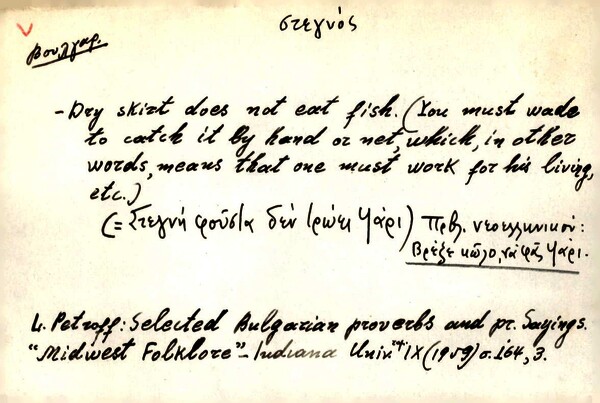 στεγνός
Βουλγαρ.
- Dry skirt does not eat fish. (You must wade
to catch it by hand or net, which, in other
words, means that one must work for his living,
etc.)
(= Στεγνή φούστα δεν τρώει ψάρι) Πρβλ. νεοελληνικόν:
Βρέξε κώλο, νά φᾶς ψάρι.
L. Petroff: Selected Bulgarian proverbs and pr. Sayings.
"Midwest Folklore" - Indiana Univ. IX (1959) σ. 164, 3.